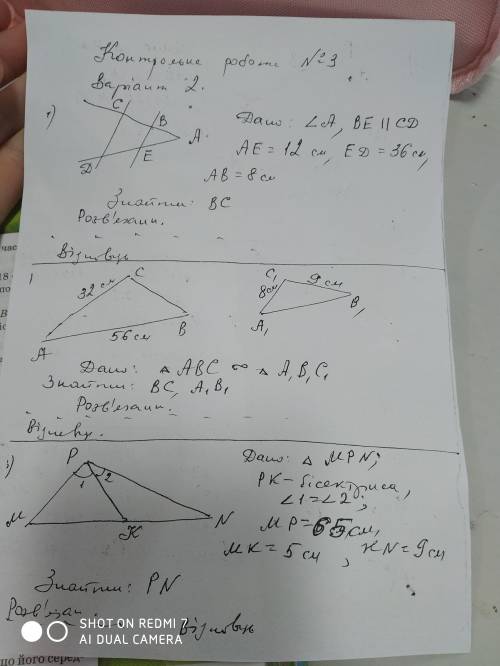 Контрольна робота №3
Варіант 2.
1)
C
B
A
D
E
Дано: ∠A, BE || CD
AE = 12 см, ED = 36 см,
AB = 8 см
Знайти: BC
Розв'язан.
Відповідь
C
32 см
56 см
A
B
C₁
9 см
8 см
B₁
A₁
Дано: △ ABC ∞ △ A₁B₁C₁
Знайти: BC, A₁B₁
Розв'язан.
Відповідь.
3)
P
1
2
M
K
N
Дано: △ MPN;
PK - бісектриса,
∠1 = ∠2;
MP = 65 см,
MK = 5 см, KN = 9 см
Знайти: PN
Розв'язан
Відповідь
SHOT ON REDMI 7
AI DUAL CAMERA